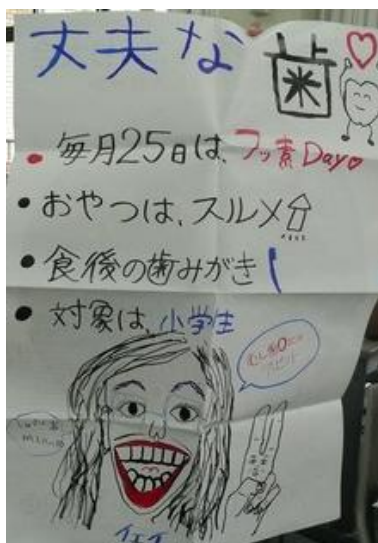 丈夫な歯
• 毎月25日は、フッ素Day♡
• おやつは、スルメ
• 食後の歯みがき
• 対象は、小学生
むし歯0に
イエイ